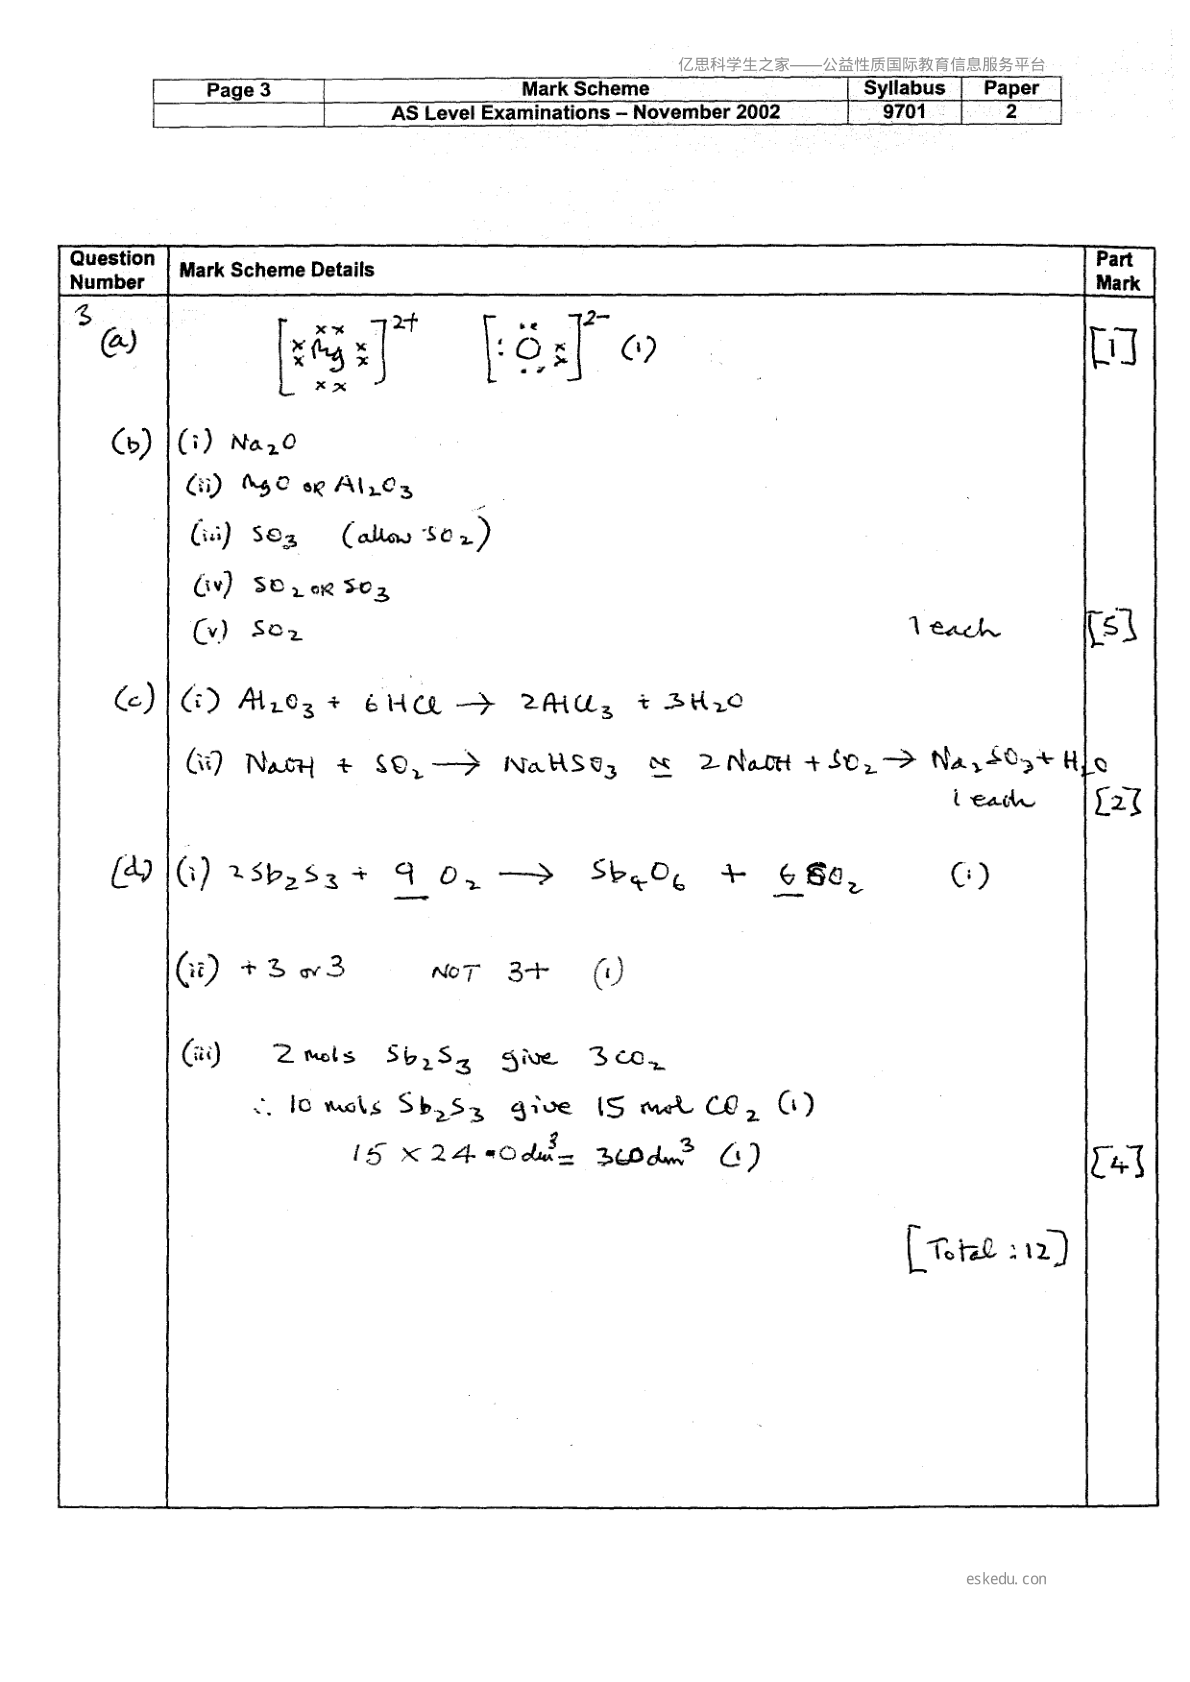 亿思科学生之家——公益性质国际教育信息服务平台
Page 3 Mark Scheme Syllabus Paper
AS Level Examinations – November 2002 9701 2
Question Number Mark Scheme Details Part Mark
3
(a) [Mg]2+ [O]2- (1) [1]
(b) (i) Na2O
(ii) MgO OR Al2O3
(iii) SO3 (allow SO2)
(iv) SO2 OR SO3
(v) SO2 1 each [5]
(c) (i) Al2O3 + 6HCl → 2AlCl3 + 3H2O
(ii) NaOH + SO2 → NaHSO3 or 2NaOH + SO2 → Na2SO3 + H2O
1 each [2]
(d) (i) 2Sb2S3 + 9 O2 → Sb4O6 + 6 SO2 (1)
(ii) +3 or 3 NOT 3+ (1)
(iii) 2 mols Sb2S3 give 3CO2
∴ 10 mols Sb2S3 give 15 mol CO2 (1)
15 × 24.0dm3 = 360dm3 (1) [4]
[Total : 12]
eskedu.con